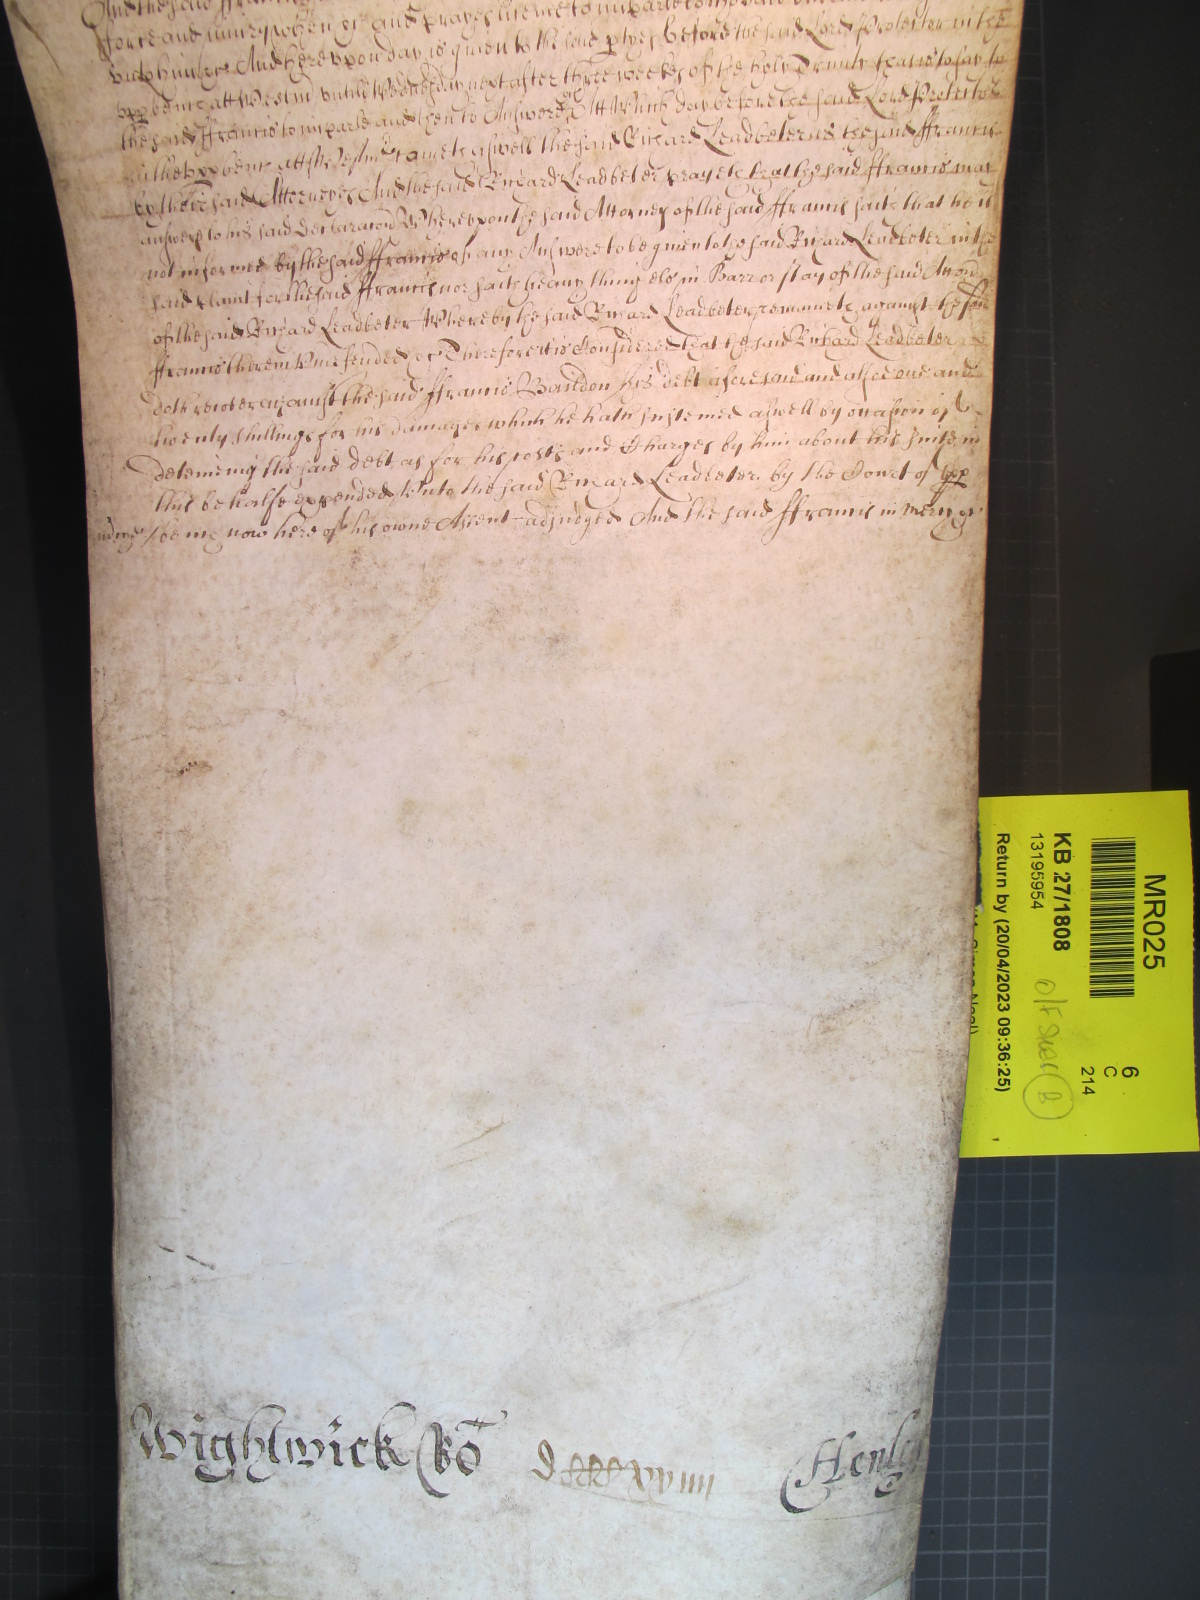 And the said ffrancis
force and iniury when &c And prayes licence to imparle
vntill And herevpon day is giuen to the said ptyes before the said Lord Protector in the
vpp bench att Westm vntill Wednesday next after three weekes of the holy Trinity that is to say to
the said ffrancis to imparle and then to Answere &c Att which day before the said Lord Protector
in the vpp bench att Westmr came aswell the said Richard Leadbeter as the said ffrancis
by their said Attorneyes And the said Richard Leadbeter prayeth that the said ffrancis may
answere to his said declaracon Wherevpon the said Attorney of the said ffrancis saith that he is
not informed by the said ffrancis of any Answere to be giuen to the said Richard Leadbeter in the
said plaint for the said ffrancis nor saith he any thing els in Barr or stay of the said Accon
of the said Richard Leadbeter Whereby the said Richard Leadbeter remaineth against the said
ffrancis therein vndefended &c Therefore it is Considered that the said Richard Leadbeter
doth recover against the said ffrancis his debt aforesaid and alsoe one and
twenty shillings for his damages which he hath susteined aswell by occasion of
deteineing the said debt as for his costs and Charges by him about his suite in
this behalfe expended vnto the said Richard Leadbeter by the Court of vpp
being now here of his owne Assent adjudged And the said ffrancis in mercy &c
Wightwick Ro
Henley
MR025
KB 27/1808
13195954
Return by (20/04/2023 09:36:25)
6
C
214
B